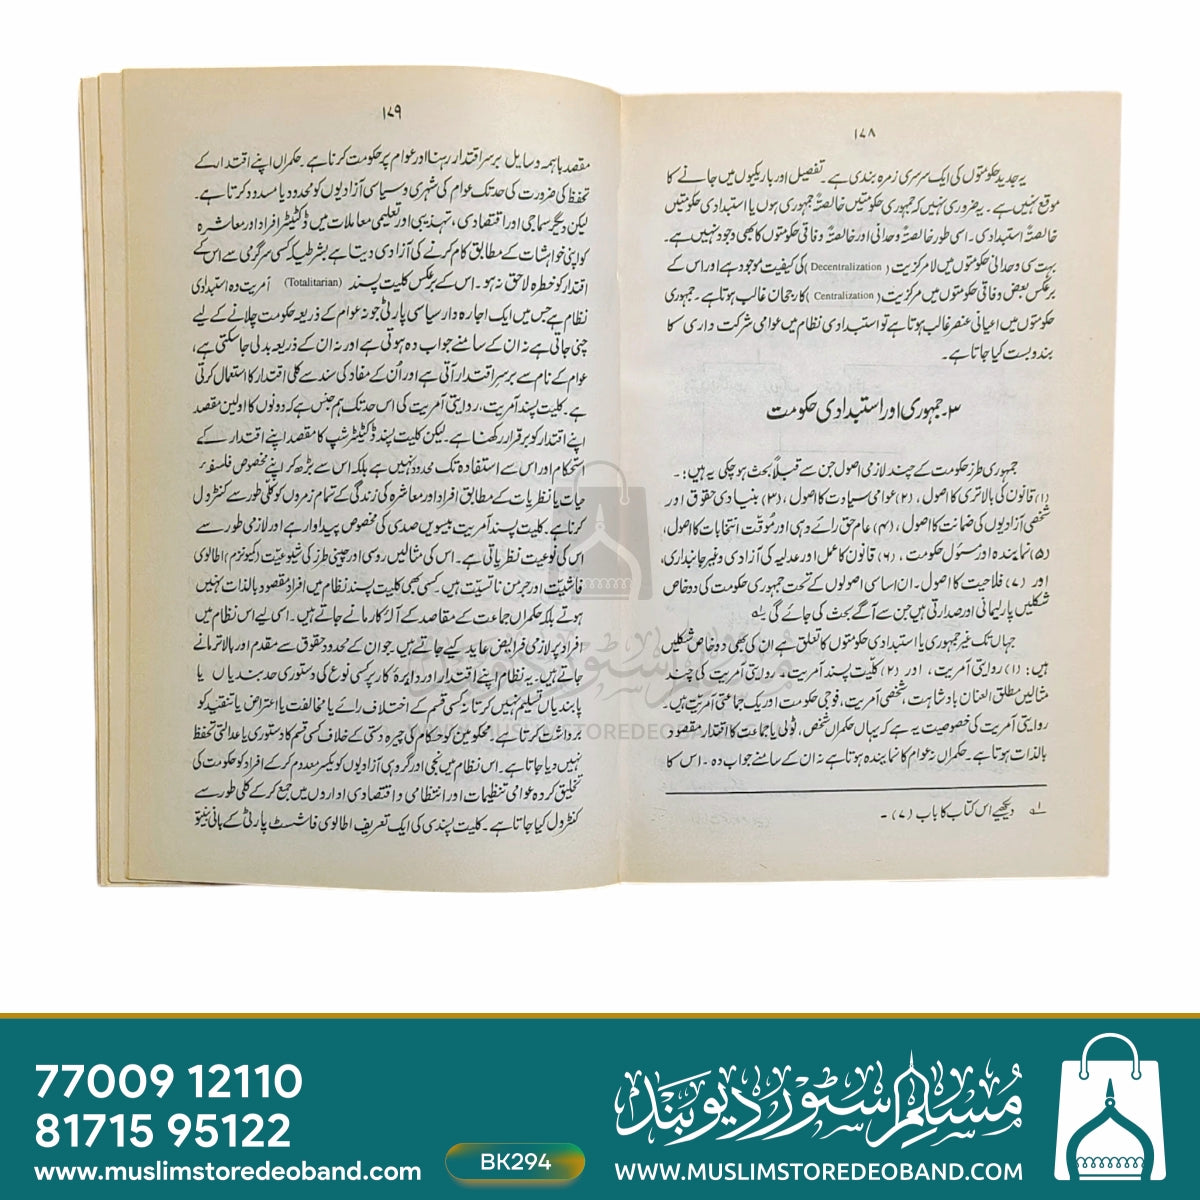 ۱۷۸
یہ جدید حکومتوں کی ایک سرسری زمرہ بندی ہے۔ تفصیل اور باریکیوں میں جانے کا
موقع نہیں ہے۔ یہ ضروری نہیں کہ جمہوری حکومتیں خالصتہً جمہوری ہوں یا استبدادی حکومتیں
خالصتہً استبدادی۔ اسی طور خالصتہً وحدانی اور خالصتہً وفاقی حکومتوں کا بھی وجود نہیں ہے۔
بہت سی وحدانی حکومتوں میں لامرکزیت (Decentralization) کی کیفیت موجود ہے اور اس کے
برعکس بعض وفاقی حکومتوں میں مرکزیت (Centralization) کا رجحان غالب ہوتا ہے۔ جمہوری
حکومتوں میں اعیانی عنصر غالب ہوتا ہے تو استبدادی نظام میں عوامی شرکت داری کا
بندوبست کیا جاتا ہے۔
۳۔ جمہوری اور استبدادی حکومت
جمہوری طرز حکومت کے چند لازمی اصول جن سے قبلاً بحث ہو چکی یہ ہیں:۔
(۱) قانون کی بالاتری کا اصول، (۲) عوامی سیادت کا اصول، (۳) بنیادی حقوق اور
شخصی آزادیوں کی ضمانت کا اصول، (۴) عام حق رائے دہی اور مُوقّت انتخابات کا اصول،
(۵) نمایندہ اور مسئول حکومت، (۶) قانون کا عمل اور عدلیہ کی آزادی و غیر جانبداری،
اور (۷) فلاحیت کا اصول۔ ان اساسی اصولوں کے تحت جمہوری حکومت کی دو خاص
شکلیں پارلیمانی اور صدارتی ہیں جن سے آگے بحث کی جائے گی ۱ے
جہاں تک غیر جمہوری یا استبدادی حکومتوں کا تعلق ہے ان کی بھی دو خاص شکلیں
ہیں: (۱) روایتی آمریت، اور (۲) کلیت پسند آمریت۔ روایتی آمریت کی چند
مثالیں مطلق العنان بادشاہت، شخصی آمریت، فوجی حکومت اور یک جماعتی آمریت ہیں۔
روایتی آمریت کی خصوصیت یہ ہے کہ یہاں حکمراں شخص، ٹولی یا جماعت کا اقتدار مقصود
بالذات ہوتا ہے۔ حکمراں نہ عوام کا نمایندہ ہوتا ہے نہ ان کے سامنے جواب دہ۔ اس کا
۱ے دیکھیے اس کتاب کا باب (۷)۔
۱۷۹
مقصد باہمہ وسایل برسر اقتدار رہنا اور عوام پر حکومت کرنا ہے۔ حکمراں اپنے اقتدار کے
تحفظ کی ضرورت کی حد تک عوام کی شہری و سیاسی آزادیوں کو محدود یا مسدود کرتا ہے۔
لیکن دیگر سماجی اور اقتصادی، تہذیبی اور تعلیمی معاملات میں ڈکٹیٹر افراد اور معاشرہ
کو اپنی خواہشات کے مطابق کام کرنے کی آزادی دیتا ہے بشرطیکہ کسی سرگرمی سے اس کے
اقتدار کو خطرہ لاحق نہ ہو۔ اس کے برعکس کلیت پسند (Totalitarian) آمریت وہ استبدادی
نظام ہے جس میں ایک اجارہ دار سیاسی پارٹی جو نہ عوام کے ذریعہ حکومت چلانے کے لیے
چنی جاتی ہے نہ ان کے سامنے جواب دہ ہوتی ہے اور نہ ان کے ذریعہ بدلی جاسکتی ہے،
عوام کے نام سے برسر اقتدار آتی ہے اور اُن کے مفاد کی سند سے کلی اقتدار کا استعمال کرتی
ہے۔ کلیت پسند آمریت، روایتی آمریت کی اس حد تک ہم جنس ہے کہ دونوں کا اولین مقصد
اپنے اقتدار کو برقرار رکھنا ہے۔ لیکن کلیت پسند ڈکٹیٹر شپ کا مقصد اپنے اقتدار کے
استحکام اور اس سے استفادہ تک محدود نہیں ہے بلکہ اس سے بڑھ کر اپنے مخصوص فلسفہ
حیات یا نظریات کے مطابق افراد اور معاشرہ کی زندگی کے تمام زمروں کو کلی طور سے کنٹرول
کرنا ہے۔ کلیت پسند آمریت بیسویں صدی کی مخصوص پیداوار ہے اور لازمی طور سے
اس کی نوعیت نظریاتی ہے۔ اس کی مثالیں روسی اور چینی طرز کی شیوعیت (کمیونزم) اطالوی
فاشیت اور جرمن ناتسیت ہیں۔ کسی بھی کلیت پسند نظام میں افراد مقصود بالذات نہیں
ہوتے بلکہ حکمراں جماعت کے مقاصد کے آلۂ کار مانے جاتے ہیں۔ اسی لیے اس نظام میں
افراد پر لازمی فرایض عاید کیے جاتے ہیں۔ جو ان کے محدود حقوق سے مقدم اور بالاتر مانے
جاتے ہیں۔ یہ نظام اپنے اقتدار اور دایرہ کار پر کسی نوع کی دستوری حد بندیاں یا
پابندیاں تسلیم نہیں کرتا نہ کسی قسم کے اختلاف رائے یا مخالفت یا اعتراض یا تنقید کو
برداشت کرتا ہے۔ محکومین کو حکام کی چیرہ دستی کے خلاف کسی قسم کا دستوری یا عدالتی تحفظ
نہیں دیا جاتا ہے۔ اس نظام میں نجی اور گروہی آزادیوں کو یکسر معدوم کر کے افراد کو حکومت کی
تخلیق کردہ عوامی تنظیمات اور انتظامی و اقتصادی اداروں میں جمع کر کے کلی طور سے
کنٹرول کیا جاتا ہے۔ کلیت پسندی کی ایک تعریف اطالوی فاشسٹ پارٹی کے بانی بنیتو
مسلم اسٹور دیوبند
WWW.MUSLIMSTOREDEOBAND.COM
77009 12110
81715 95122
www.muslimstoredeoband.com
BK294
مسلم اسٹور دیوبند
WWW.MUSLIMSTOREDEOBAND.COM